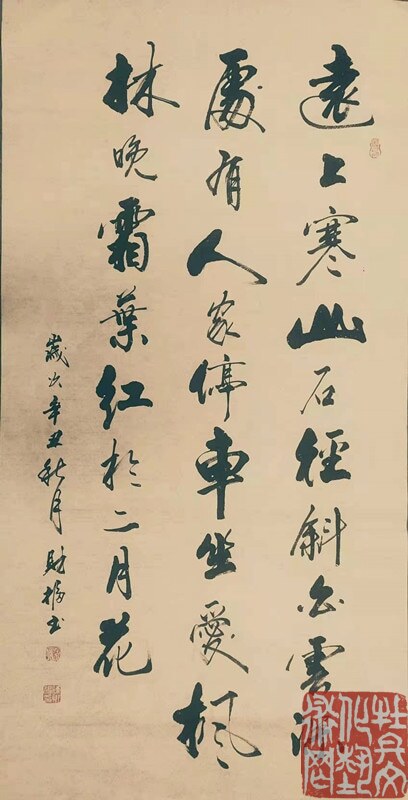 遠上寒山石徑斜白雲深
處有人家停車坐愛楓
林晚霜葉紅於二月花
歲次辛丑秋月財書